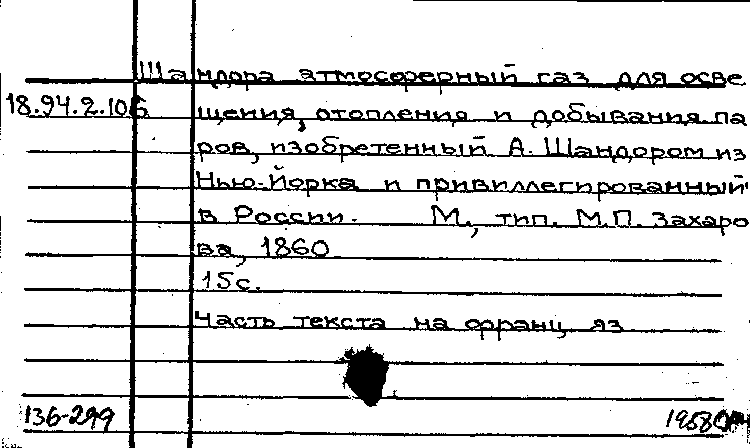 Шандора атмосферный газ для осве
18.94.2.106 щения, отопления и добывания па
ров, изобретенный А. Шандором из
Нью-Йорка и привиллегированный
в России. М., тип. М.П. Захаро
ва, 1860
15с.
Часть текста на франц яз
136-299